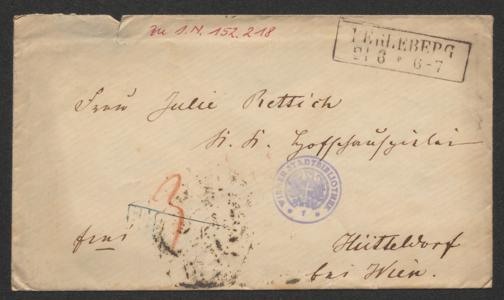 zu I.N. 152.218
PERLEBERG
21 6 * 6-7
Frau Julie Rettich
K. K. Hofschauspielerin
3
WIENER STADTBIBLIOTHEK
frei
Hütteldorf
bei Wien.